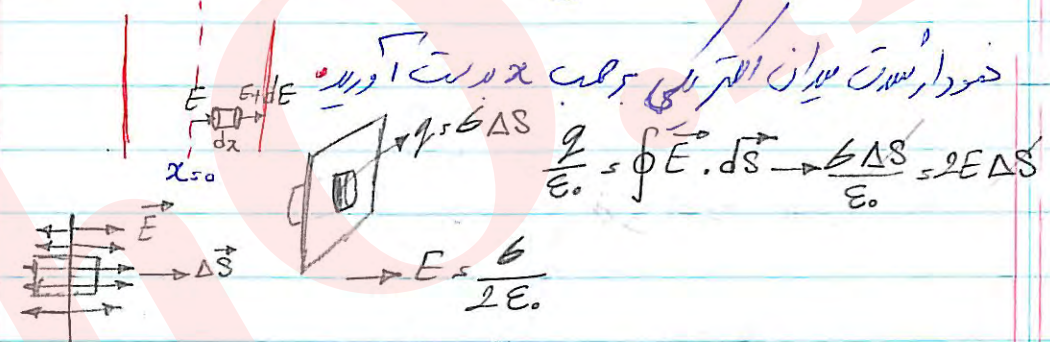 نمودار شدت میدان الکتریکی بر حسب x بدست آورید.
E E+dE
dx
x=0
q=σΔS
q/ε₀ = ∮E⃗.dS⃗ → σΔS/ε₀ = 2EΔS
E⃗
ΔS⃗
→ E = σ/2ε₀